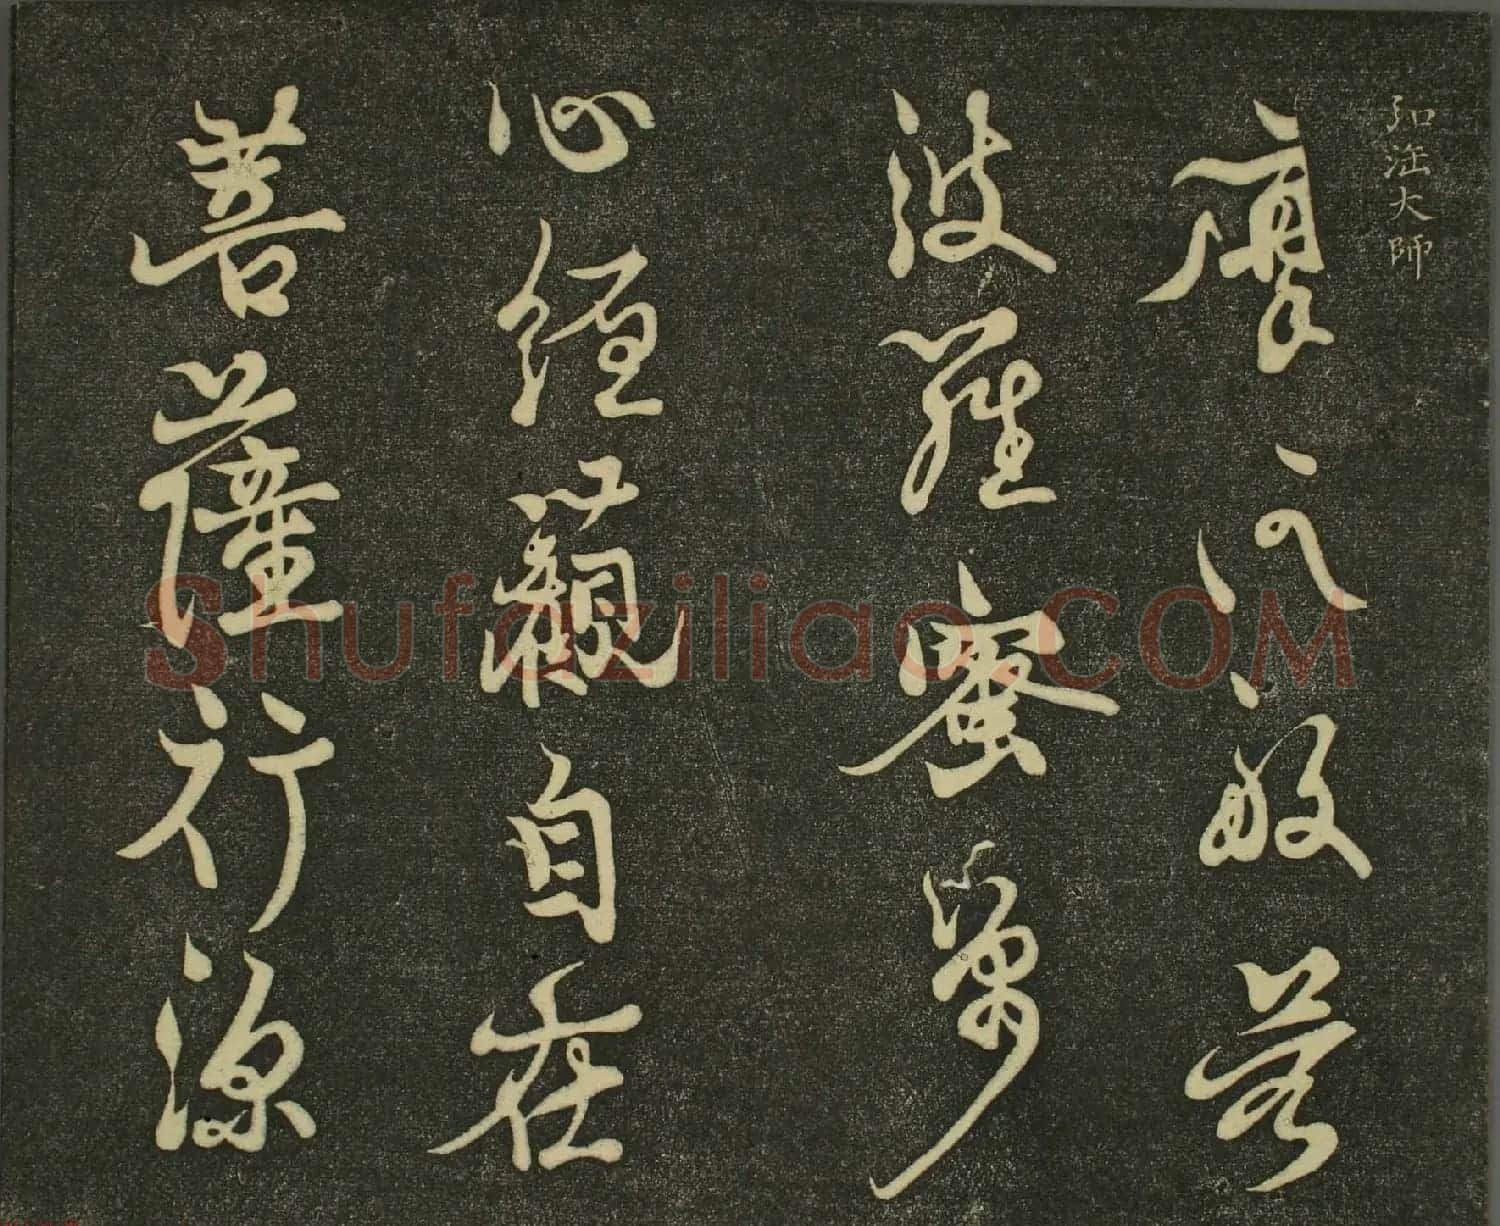 弘法大師
摩訶般若
波羅蜜多
心經觀自在
菩薩行深
Shufaziliao.COM